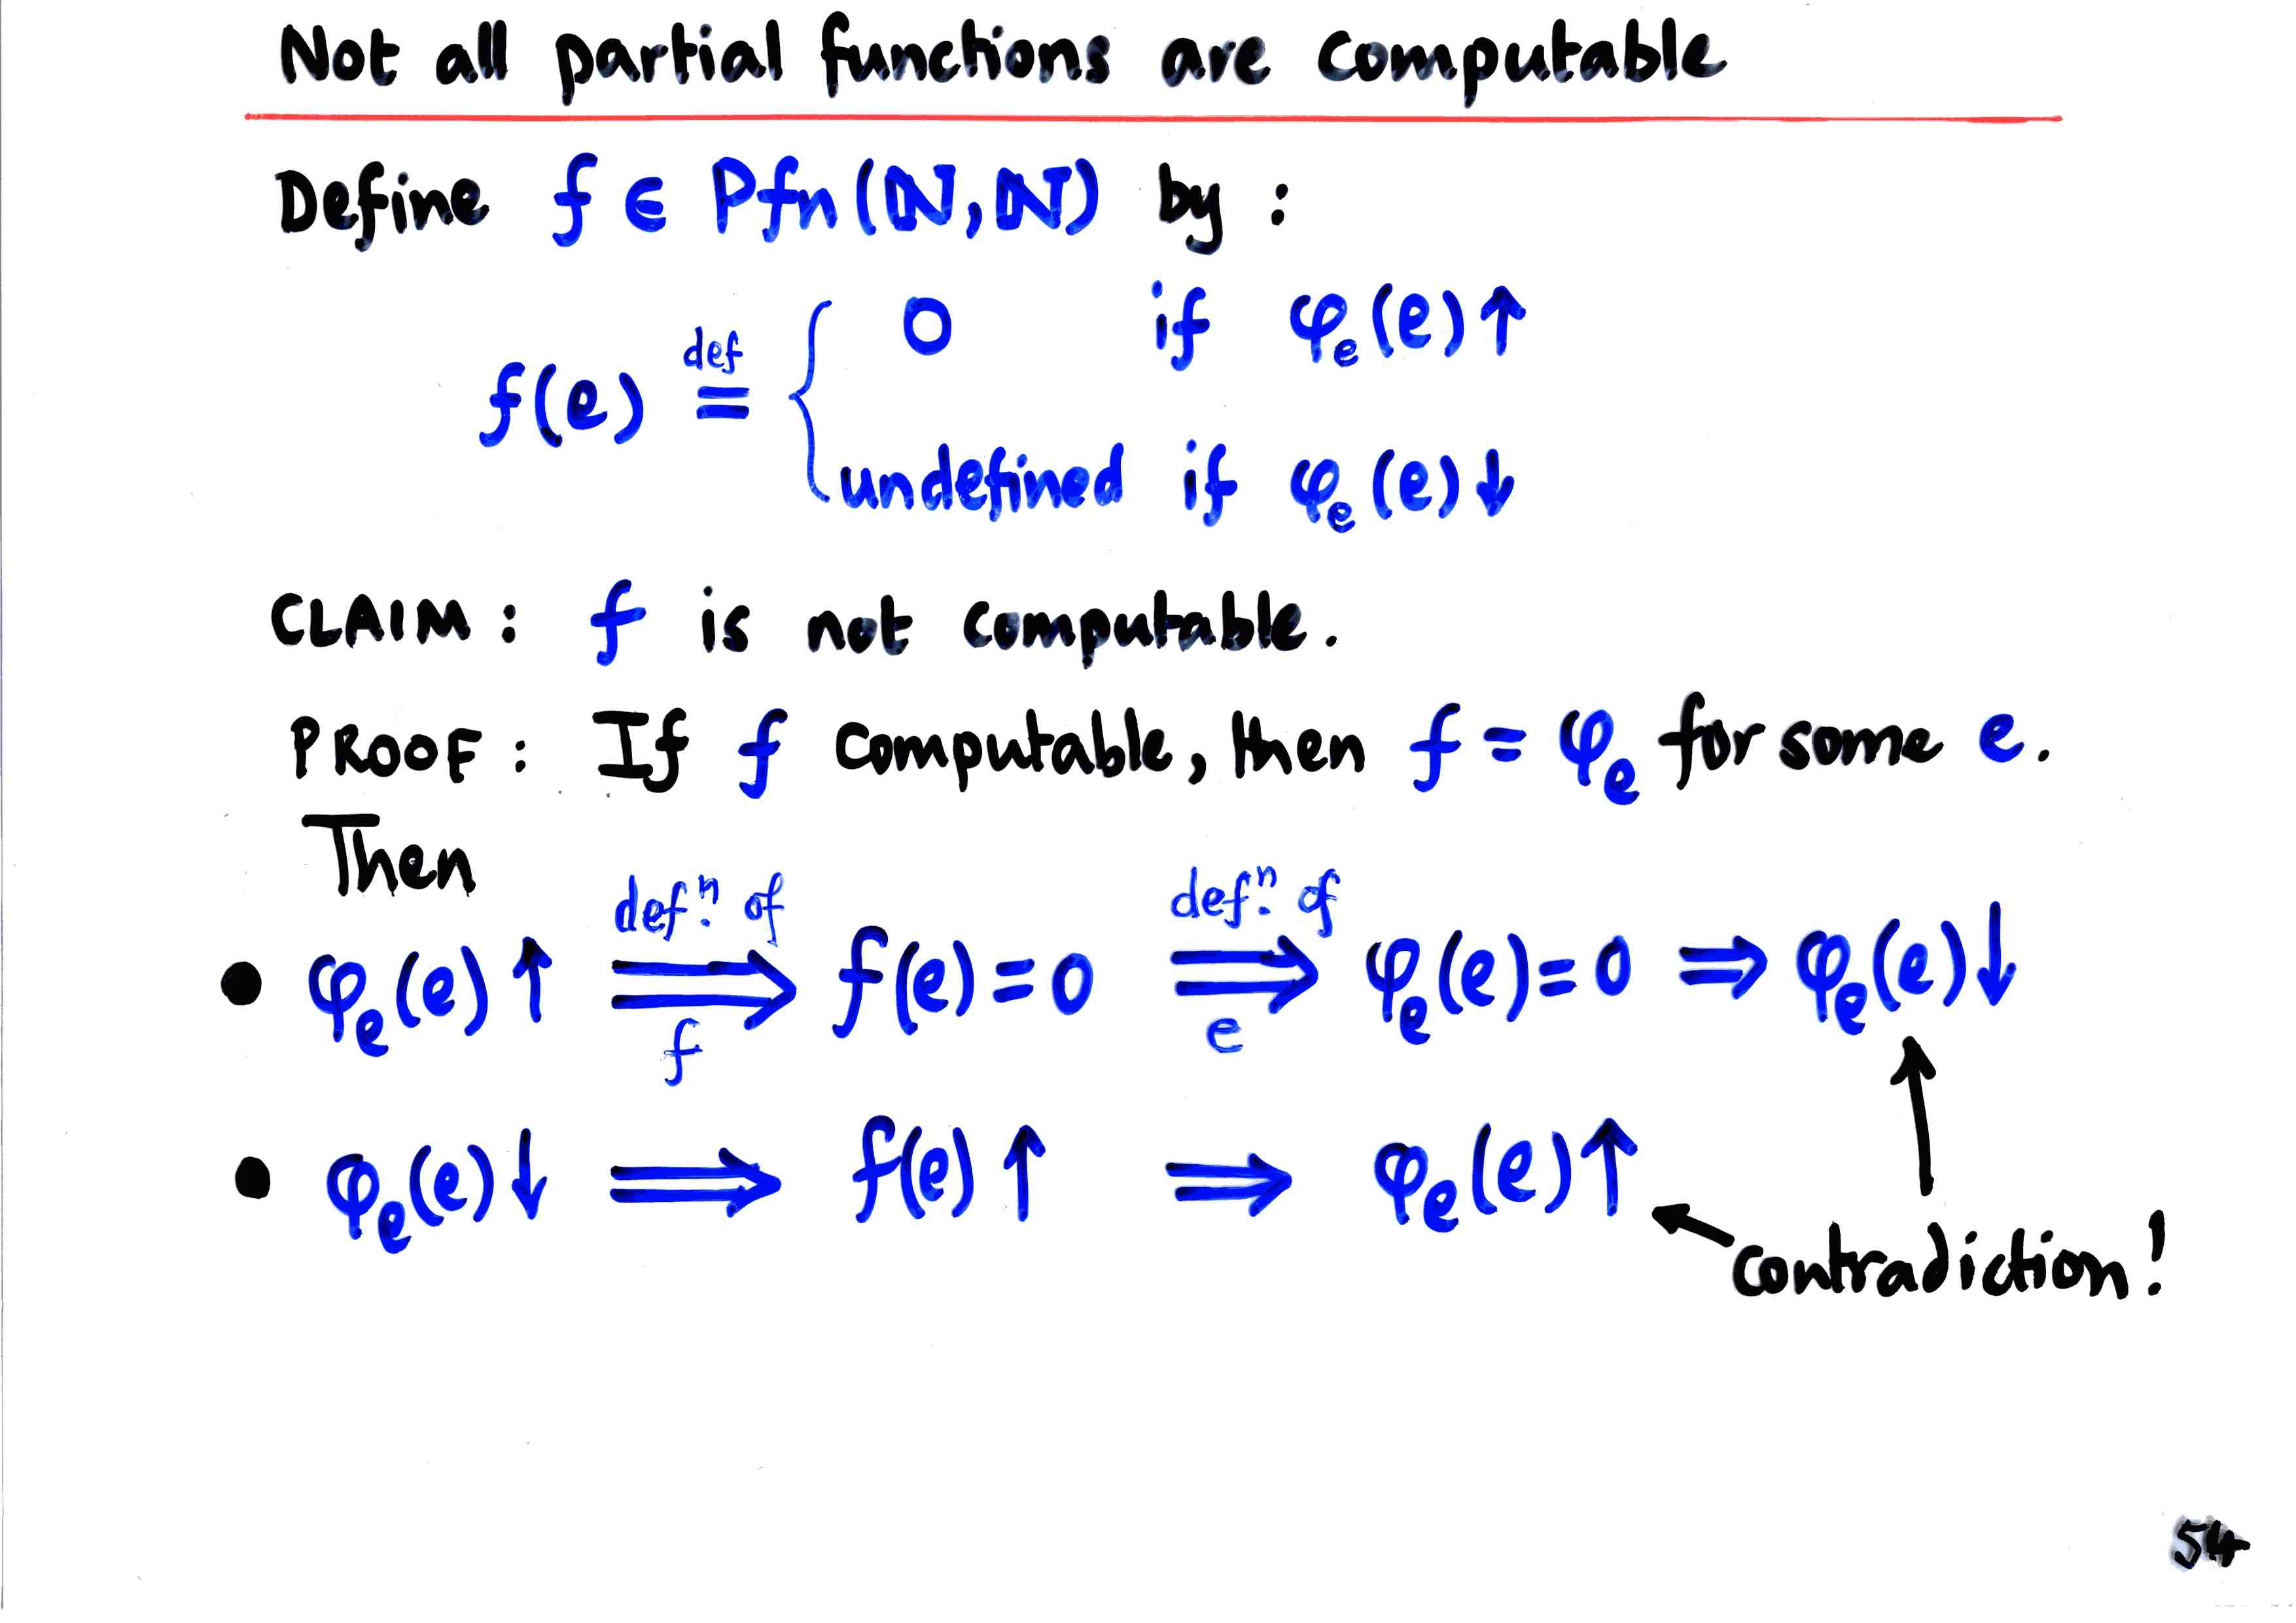 Not all partial functions are computable
Define f ∈ Pfn(ℕ,ℕ) by :
f(e) def= { 0 if φₑ(e)↑
undefined if φₑ(e)↓
CLAIM : f is not computable.
PROOF : If f computable, then f = φₑ for some e.
Then
● φₑ(e)↑ defⁿ. of ⟹ f f(e)=0 defⁿ. of ⟹ e φₑ(e)=0 ⟹ φₑ(e)↓
● φₑ(e)↓ ⟹ f(e)↑ ⟹ φₑ(e)↑
contradiction!
54